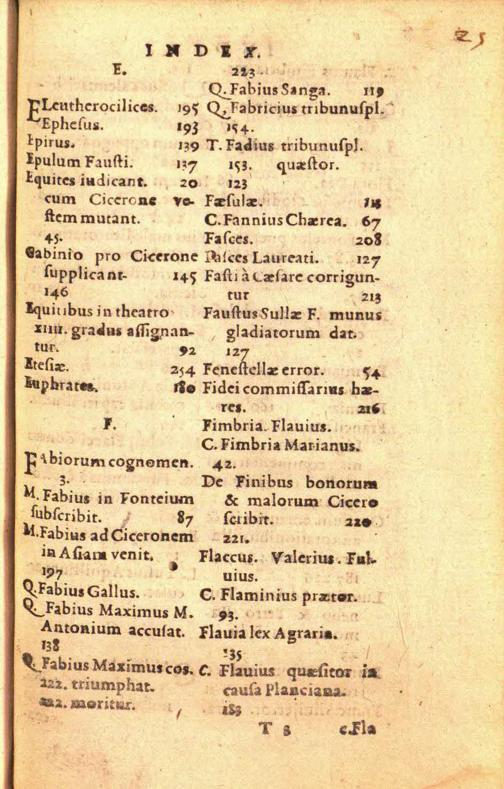 25
INDEX.
E.
ELeutherocilices. 195
Ephesus. 193
Epirus. 139
Epulum Fausti. 137
Equites iudicant. 20
cum Cicerone ve-
stem mutant.
45.
Gabinio pro Cicerone
supplicant- 145
146
Equitibus in theatro
xiiii. gradus assignan-
tur. 92
Etesiæ. 254
Euphrates. 180
F.
FAbiorum cognomen.
3.
M. Fabius in Fonteium
subscribit. 87
M. Fabius ad Ciceronem
in Asiam venit.
197
Q. Fabius Gallus.
Q. Fabius Maximus M.
Antonium accusat.
138
Q. Fabius Maximus cos.
222. triumphat.
222. moritur.
223
Q. Fabius Sanga. 119
Q. Fabricius tribunuspl.
154.
T. Fadius tribunuspl.
153. quæstor.
123
Fæsulæ.
C. Fannius Chærea. 67
Fasces. 208
Fasces Laureati. 127
Fasti à Cæsare corrigun-
tur 213
Faustus Sullæ F. munus
gladiatorum dat.
127
Fenestellæ error. 54
Fidei commissarius hæ-
res. 216
Fimbria. Flauius.
C. Fimbria Marianus.
42.
De Finibus bonorum
& malorum Cicero
scribit. 220
221.
Flaccus. Valerius. Ful-
uius.
C. Flaminius prætor.
93.
Flauia lex Agraria.
135
C. Flauius quæsitor in
causa Planciana.
183
T 8 c.Fla